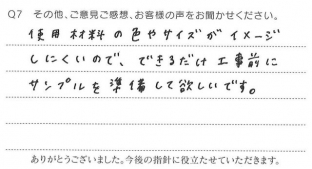 Q7 その他、ご意見ご感想、お客様の声をお聞かせください。
使用材料の色やサイズがイメージ
しにくいので、できるだけ工事前に
サンプルを準備して欲しいです。
ありがとうございました。今後の指針に役立たせていただきます。